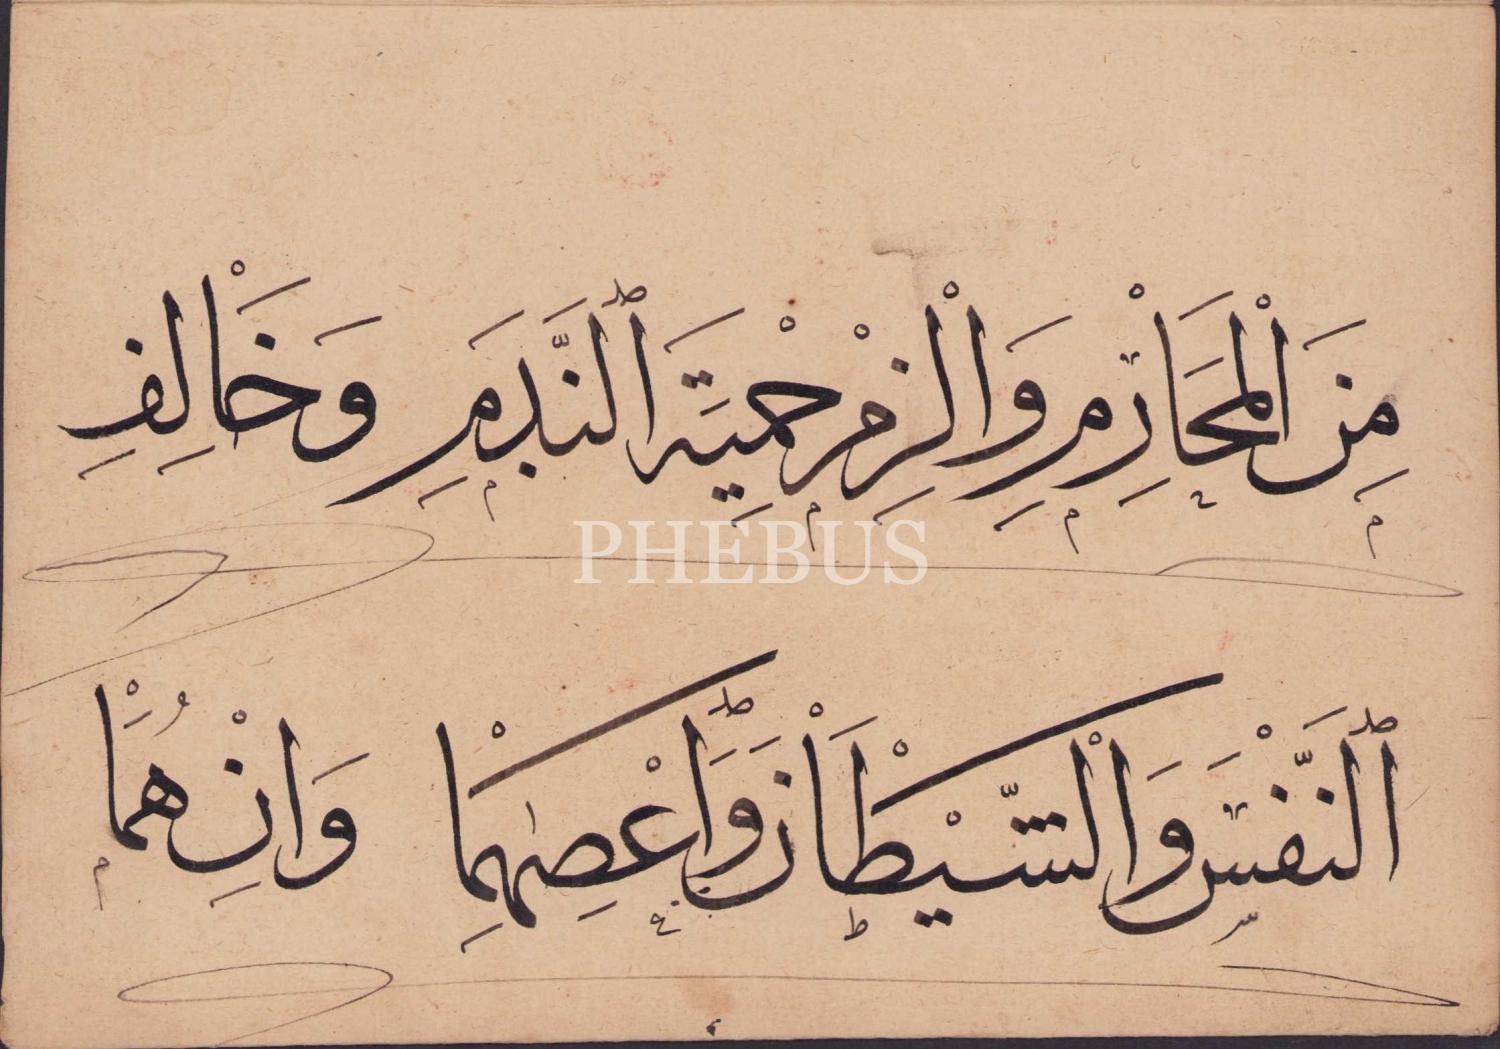 مِنَ الْمَحَارِمِ وَالْزَمْ حِمْيَةَ النَّدَمِ وَخَالِفِ
PHEBUS
النَّفْسَ وَالشَّيْطَانَ وَاعْصِهِمَا وَاِنْ هُمَا